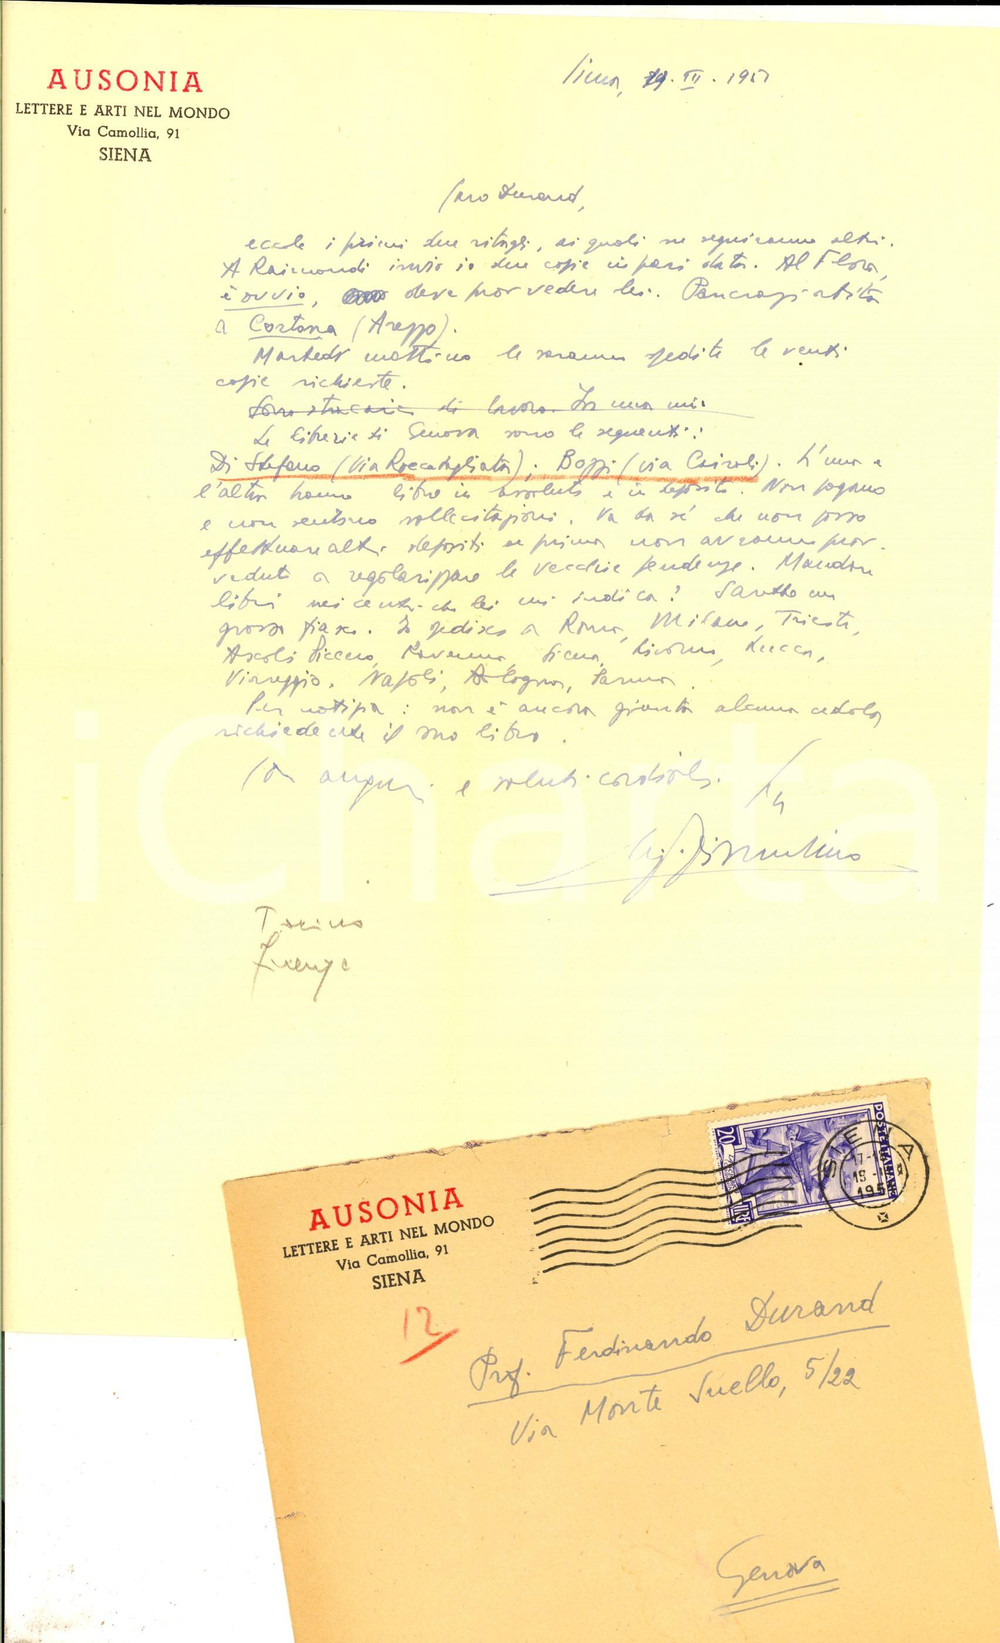 AUSONIA
LETTERE E ARTI NEL MONDO
Via Camollia, 91
SIENA
Siena, III. 1951
Caro Durand,
eccole i primi due ritagli, ai quali ne seguiranno altri.
A Raimondi invio io due copie in pari data. Al Flora,
è ovvio, deve provvedere lei. Pancrazi abita
a Cortona (Arezzo).
Martedì mattina le saranno spedite le venti
copie richieste.
Sono stracarico di lavoro. In una mi
Le librerie di Genova sono le seguenti:
Di Stefano (Via Roccatagliata); Bozzi (via Cairoli). L'una e
l'altra hanno libro in assoluto e in deposito. Non pagano
e non sentono sollecitazioni. Va da sé che non posso
effettuare altri depositi se prima non avranno prov-
veduto a regolarizzare le vecchie pendenze. Mandare
libri nei centri che lei mi indica? Sarebbe un
grosso fiasco. Io spedisco a Roma, Milano, Trieste,
Ascoli Piceno, Ravenna, Siena, Livorno, Lucca,
Viareggio, Napoli, Bologna, Parma.
Per notizia: non è ancora giunta alcuna cedola
richiedente il suo libro.
Con auguri e saluti cordiali.
Torino
Firenze
iCharta
AUSONIA
LETTERE E ARTI NEL MONDO
Via Camollia, 91
SIENA
12
20
POSTE ITALIANE
SIENA
Prof. Ferdinando Durand
Via Monte Suello, 5/22
Genova